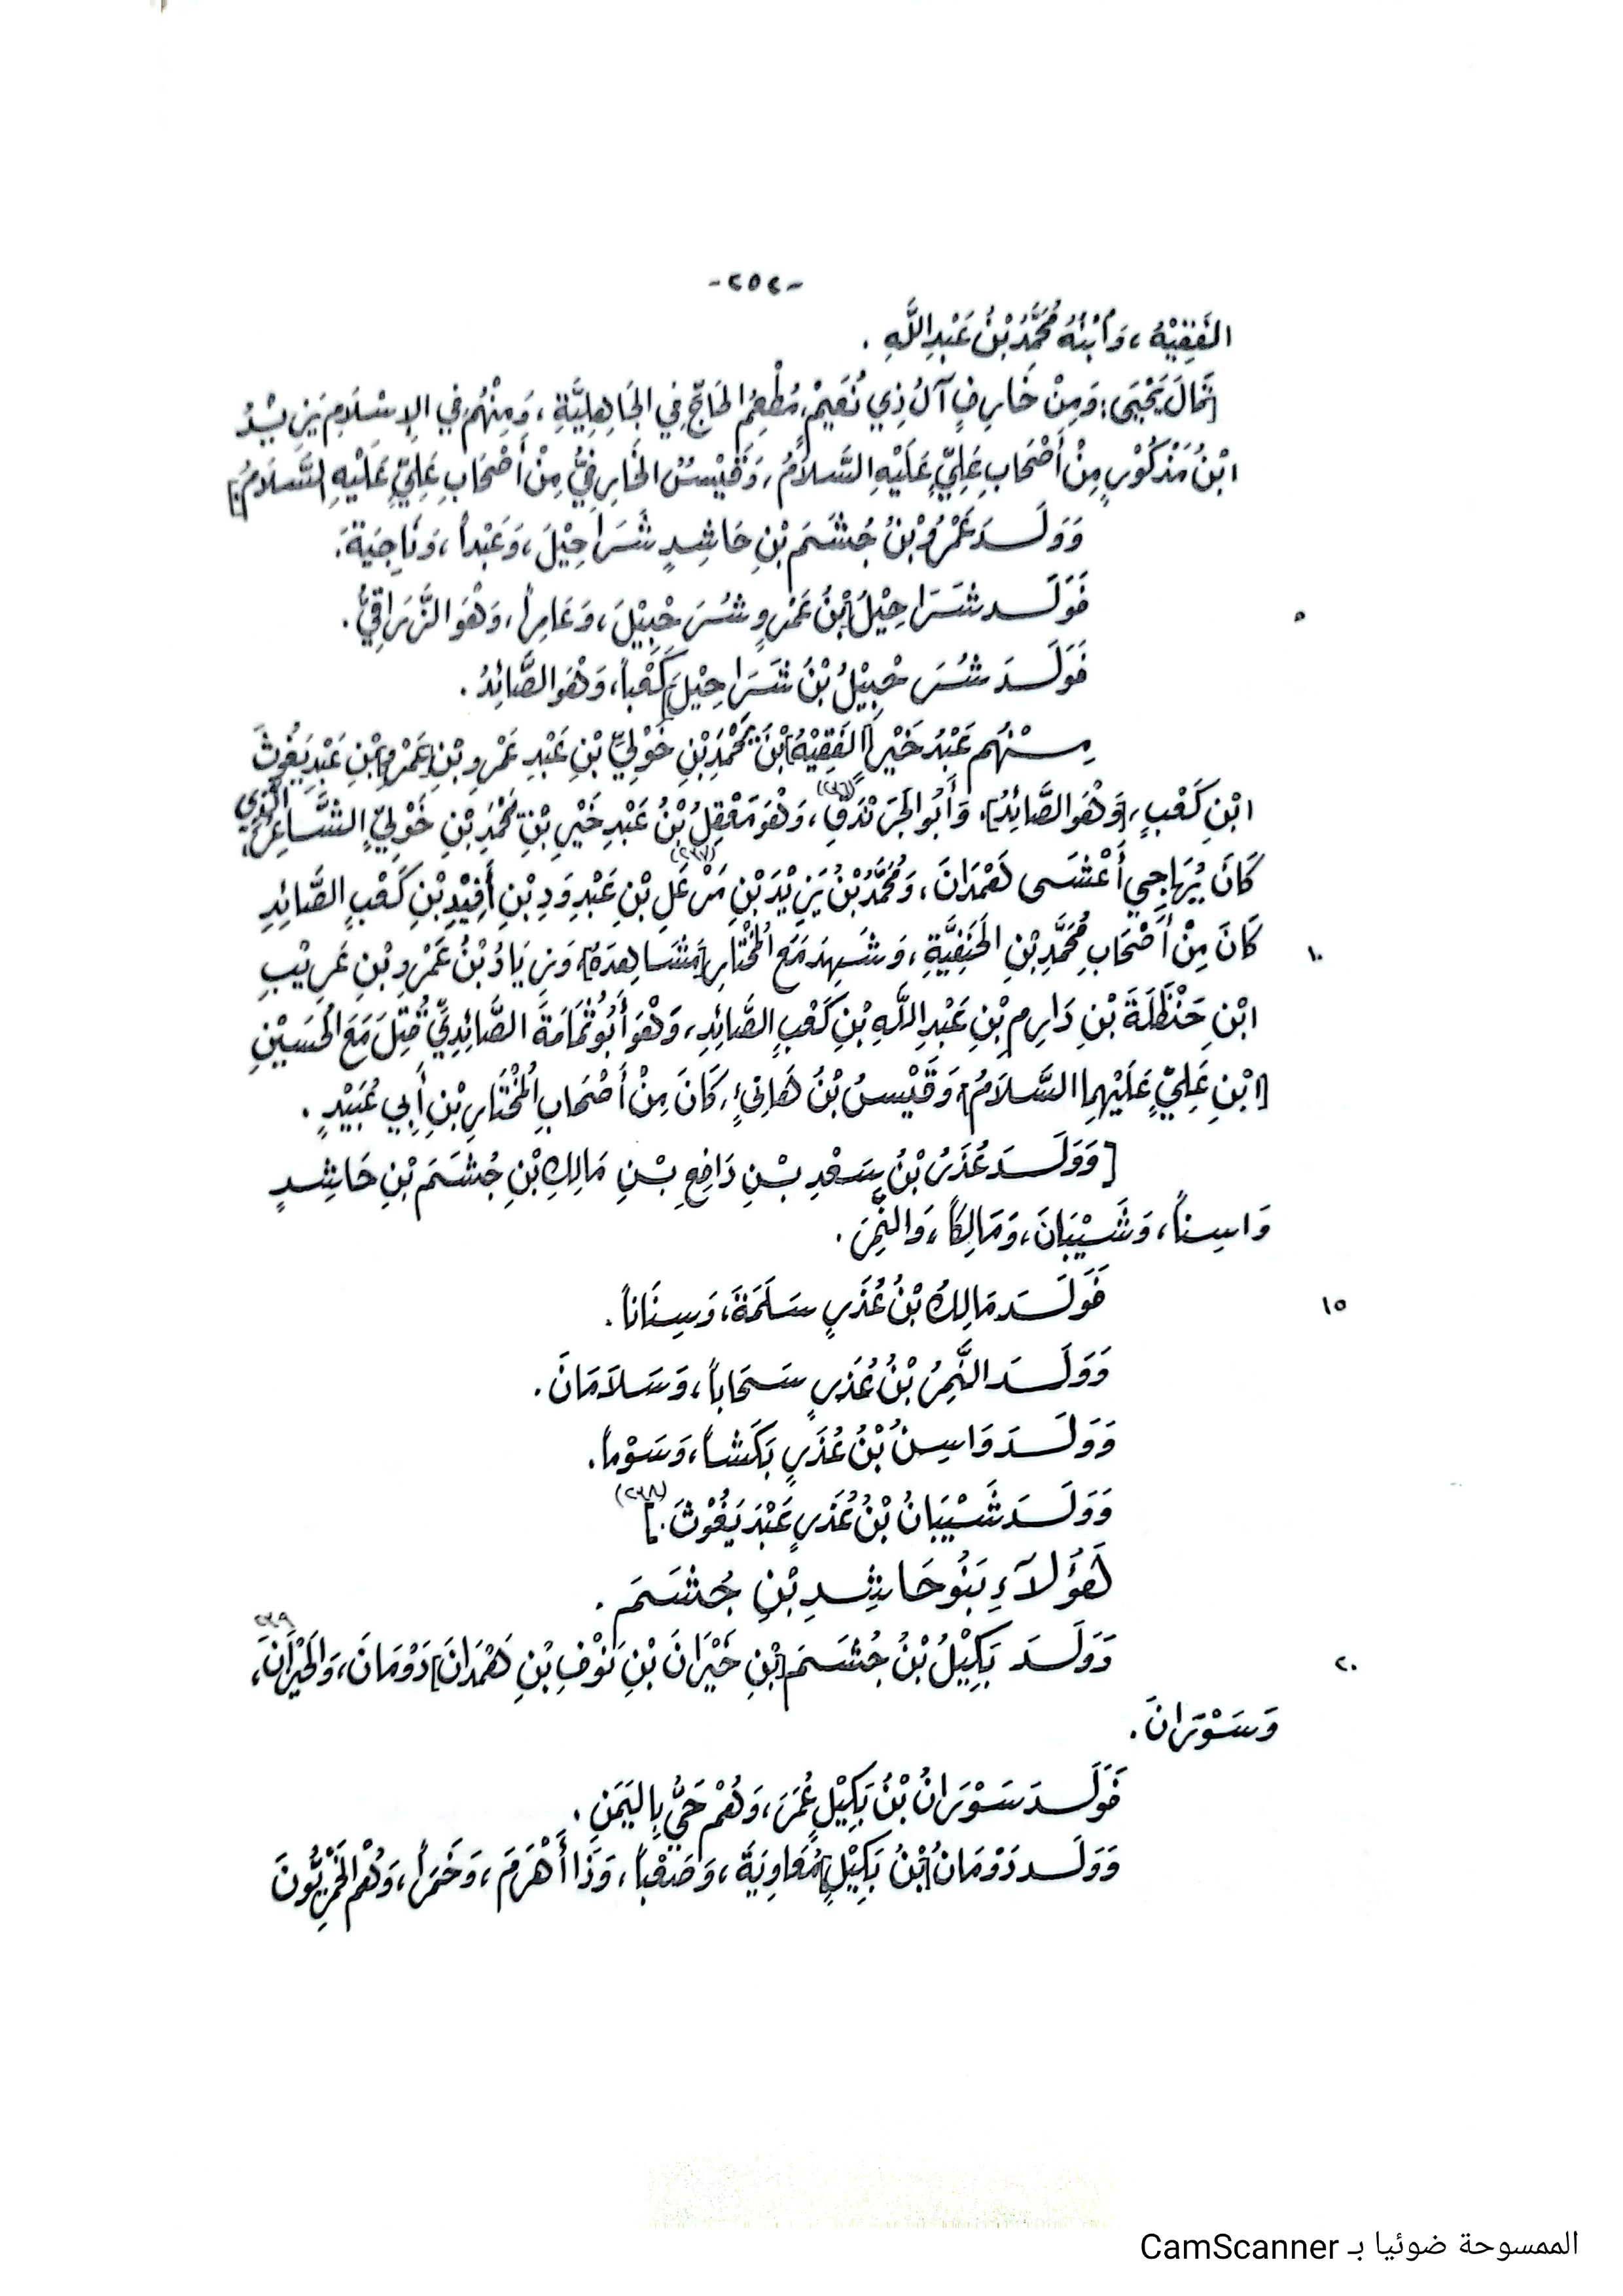 -٢٥٢-
الفَقِيْهُ، وَٱبْنُهُ مُحَمَّدُ بْنُ عَبْدِ اللَّهِ .
[قَالَ يَحْيَى: وَمِنْ خَارِفٍ آلُ ذِي نُعَيْمٍ، مُطْعِمُ الحَاجِّ فِي الجَاهِلِيَّةِ، وَمِنْهُم فِي الإِسْلَامِ يَزِيْدُ
ابْنُ مَذْكُوْرٍ مِنْ أَصْحَابِ عَلِيٍّ عَلَيْهِ السَّلَامُ، وَقَيْسُ الخَارِفِيُّ مِنْ أَصْحَابِ عَلِيٍّ عَلَيْهِ السَّلَامُ.]
وَوَلَــدَ عَمْرُو بْنُ جُشَمَ بْنِ حَاشِدٍ شَرَاحِيْلَ، وَعَبْداً، وَنَاجِيَةَ.
فَوَلَــد شَرَاحِيْلُ [بْنُ عَمْرٍو شُرَحْبِيْلَ، وَعَامِراً، وَهْوَ الزَّرَاقِيُّ. ٥
فَوَلَــدَ شُرَحْبِيْلُ بْنُ شَرَاحِيْلَ] كَعْباً، وَهْوَ الصَّائِدُ .
مِــنْهُم عَبْدُ خَيْرٍ [الفَقِيْهُ] بْنُ يَحْمَدَ بْنِ خَوْلِيِّ بْنِ عَبْدِ عَمْرِو بْنِ [عَمْرِو] بْنِ عَبْدِ يَغُوثَ
ابْنِ كَعْبٍ، [وَهْوَ الصَّائِدُ]. وَأَبُو الجَرَنْدَقِ(٢٣٦)، وَهْوَ مَعْقِلُ بْنُ عَبْدِ خَيْرِ بْنِ يَحْمَدَ بْنِ خَوْلِيٍّ الشَّاعِرُ، الَّذِي
كَانَ يُهَاجِي أَعْشَى هَمْدَانَ، وَمُحَمَّدُ بْنُ يَزِيْدَ بْنِ مَرْعَلِ(٢٣٧) بْنِ عَبْدِ وَدِ بْنِ أَفِيْدِ بْنِ كَعْبٍ الصَّائِدِ
كَانَ مِنْ أَصْحَابِ مُحَمَّدِ بْنِ الحَنَفِيَّةِ، وَشَهِدَ مَعَ المُخْتَارِ [مَشَاهِدَهُ]، وَزِيَادُ بْنُ عَمْرِو بْنِ عَرِيْبِ ١٠
ابْنِ حَنْظَلَةَ بْنِ دَارِمِ بْنِ عَبْدِ اللَّهِ بْنِ كَعْبٍ الصَّائِدِ، وَهْوَ أَبُو ثُمَامَةَ الصَّائِدِيُّ قُتِلَ مَعَ الحُسَيْنِ
[ابْنِ عَلِيٍّ عَلَيْهِما السَّلَامُ] وَقَيْسُ بْنُ هَانِئٍ، كَانَ مِنْ أَصْحَابِ المُخْتَارِ بْنِ أَبِي عُبَيْدٍ .
[وَوَلَــدَ عُذَرُ بْنُ سَعْدِ بْــنِ دَافِعِ بْــنِ مَالِكِ بْنِ جُشَمَ بْنِ حَاشِــدٍ
وَاسِناً، وَشَيْبَانَ، وَمَالِكاً، وَالنَّمِرَ .
فَوَلَــدَ مَالِكُ بْنُ عُذَرٍ سَلَمَةَ، وَسِنَاناً . ١٥
وَوَلَــدَ النَّمِرُ بْنُ عُذَرٍ سَحَاباً، وَسَلَامَانَ .
وَوَلَــدَ وَاسِنُ بْنُ عُذَرٍ بَكَشاً، وَسَوْماً.
وَوَلَــدَ شَيْبَانُ بْنُ عُذَرٍ عَبْدَ يَغُوْثَ .](٢٣٨)
هَؤُلَاءِ بَنُو حَاشِــدِ بْنِ جُشَمَ .
وَوَلَــدَ بَكِيْلُ بْنُ جُشَــمَ [بْنِ خَيْرَانَ بْنِ نَوْفِ بْنِ هَمْدَانَ] دَوْمَانَ، وَالخَيْرَانَ٢٣٩، ٢٠
وَسَوْرَانَ .
فَوَلَــدَ سَوْرَانُ بْنُ بَكِيْلٍ عُمَرَ، وَهُمْ حَيٌّ بِاليَمَنِ .
وَوَلَــد دَوْمَانُ [بْنُ بَكِيْلٍ] مُعَاوِيَةَ، وَصَعْباً، وَذَا أَهْرَمَ، وَخَمَراً، وَهُمُ الخَمْرِيُّونَ
الممسوحة ضوئيا بـ CamScanner